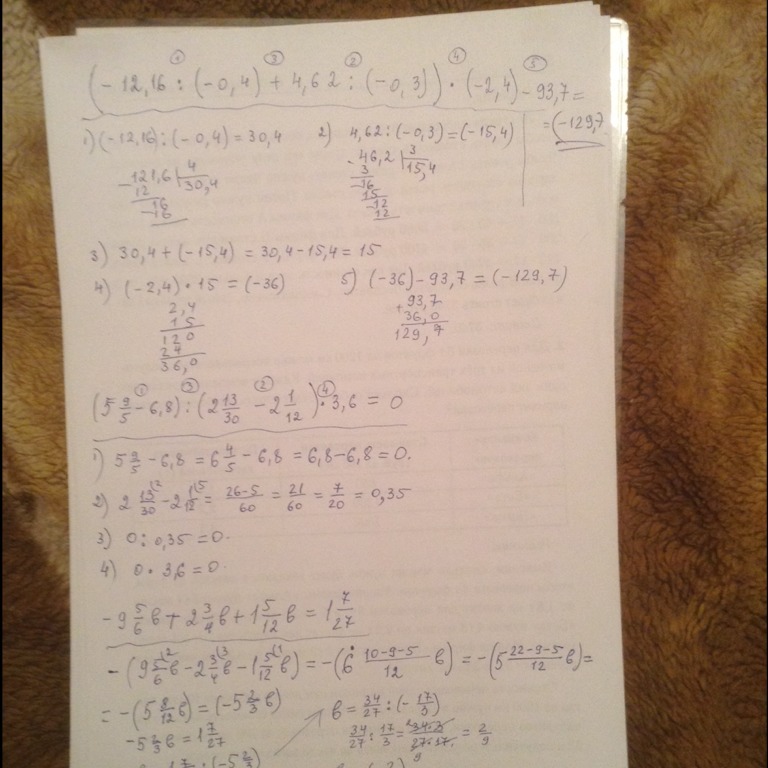 (- 12,16 : (-0,4) + 4,62 : (-0,3)) · (-2,4) - 93,7 =
① ③ ② ④ ⑤
= (-129,7
1) (-12,16) : (-0,4) = 30,4
121,6 | 4
30,4
12
16
16
2) 4,62 : (-0,3) = (-15,4)
46,2 | 3
15,4
3
16
15
12
12
3) 30,4 + (-15,4) = 30,4 - 15,4 = 15
4) (-2,4) · 15 = (-36)
2,4
15
120
24
36,0
5) (-36) - 93,7 = (-129,7)
+ 93,7
36,0
129,7
① ③ ② ④
(5 9/5 - 6,8) : (2 13/30 - 2 1/12) · 3,6 = 0
1) 5 9/5 - 6,8 = 6 4/5 - 6,8 = 6,8 - 6,8 = 0.
2) 2 13/30 - 2 1/12 = 26-5/60 = 21/60 = 7/20 = 0,35
3) 0 : 0,35 = 0.
4) 0 · 3,6 = 0.
- 9 5/6 в + 2 3/4 в + 1 5/12 в = 1 7/27
- (9 5/6 в - 2 3/4 в - 1 5/12 в) = - (6 10-9-5/12 в) = - (5 22-9-5/12 в) =
= - (5 8/12 в) = (-5 2/3 в)
-5 2/3 в = 1 7/27
в = 34/27 : (- 17/3)
34/27 : 17/3 = 34·3/27·17 = 2/9
: (-5 2/3)